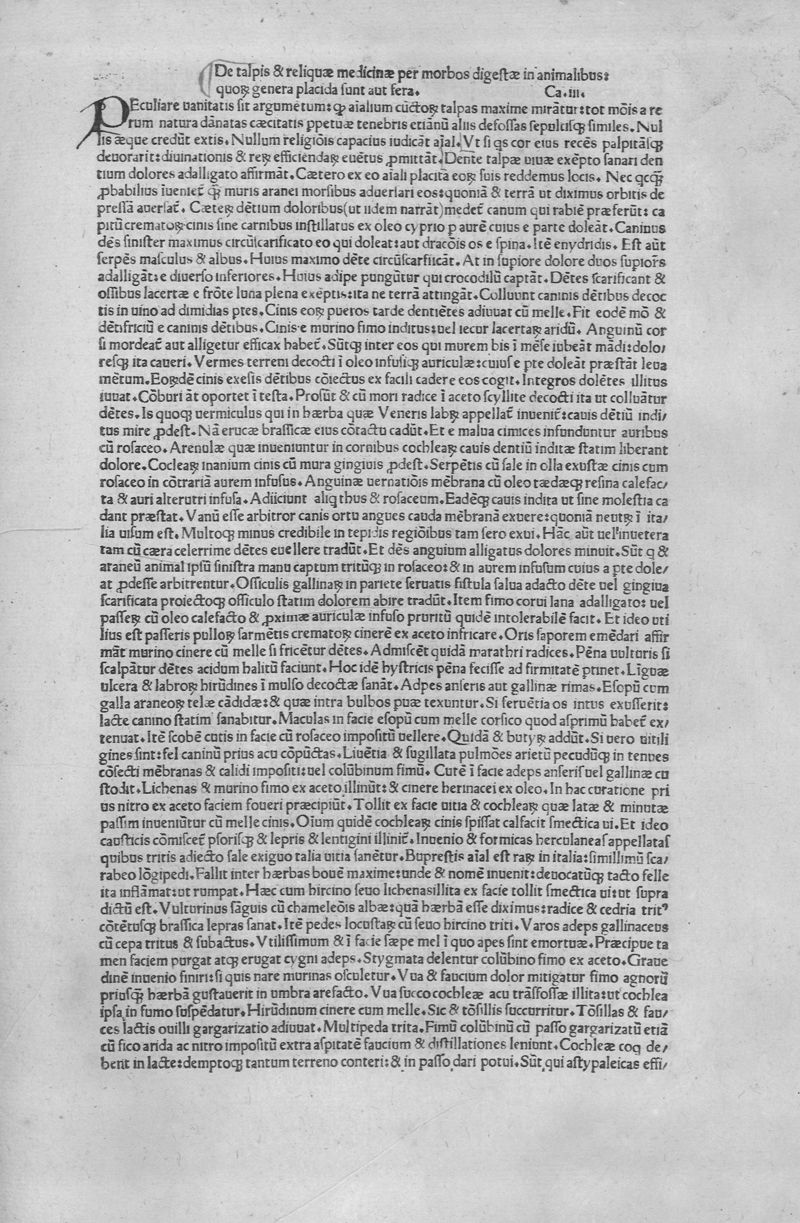 De talpis & reliquæ medicinæ per morbos digestæ in animalibus:
quoꝝ genera placida sunt aut fera. Ca.iii.
PEculiare uanitatis sit argumẽtum: ꝙ aialium cũctoꝝ talpas maxime mirãtur: tot mõis a re
rum natura dãnatas cæcitatis ppetuæ tenebris etiãnũ aliis defossas sepulisꝗ similes. Nul
lis æque credũt extis. Nullum religiõis capacius iudicãt aĩal. Vt si qs cor eius recẽs palpitãsꝗ
deuorarit: diuinationis & reꝝ efficiendaꝝ euẽtus ꝓmittãt. Dente talpæ uiuæ exẽpto sanari den
tium dolores adalligato affirmãt. Cætero ex eo aiali placita eoꝝ suis reddemus locis. Nec qcꝗ̃
ꝓbabilius iueniet̃ ꝗ̃ muris aranei morsibus aduersari eos: quoniã & terrã ut diximus orbitis de
pressã auersat̃. Cæteꝝ dẽtium doloribus (ut iidem narrãt) medet̃ canum qui rabie præferũt: ca
pitũ crematoꝝ cinis sine carnibus instillatus ex oleo cyprio p aurẽ cuius e parte doleãt. Caninus
dẽs sinister maximus circũscarificato eo qui doleat: aut dracõis os e spina. Itẽ enydridis. Est aũt
serpẽs masculus & albus. Huius maximo dẽte circũscarificãt. At in supiore dolore duos supiors
adalligãt: e diuerso inferiores. Huius adipe pungũtur qui crocodilũ captãt. Dẽtes scarificant &
ossibus lacertæ e frõte luna plena exẽptis: ita ne terrã attingãt. Colluunt caninis dẽtibus decoc
tis in uino ad dimidias ptes. Cinis eoꝝ pueros tarde dentiẽtes adiuuat cũ melle. Fit eodẽ mõ &
dẽtifriciũ e caninis dẽtibus. Cinis e murino fimo inditus: uel iecur lacertaꝝ aridũ. Anguinũ cor
si mordeat̃ aut alligetur efficax habet̃. Sũtꝗ inter eos qui murem bis i mẽse iubeãt mãdi: dolo/
resꝗ ita caueri. Vermes terreni decocti i oleo infusiꝗ auriculæ: cuius e pte doleãt præstãt leua
mẽtum. Eoꝝdẽ cinis exesis dẽtibus cõiectus ex facili cadere eos cogit. Integros dolẽtes illitus
iuuat. Cõburi ãt oportet i testa. Prosũt & cũ mori radice i aceto scyllite decocti ita ut colluãtur
dẽtes. Is quoꝗ uermiculus qui in hærba quæ Veneris labꝝ appellat̃ inuenit̃: cauis dẽtiũ indi/
tus mire ꝓdest. Nã erucæ brassicæ eius cõtactu cadũt. Et e malua cimices infunduntur auribus
cũ rosaceo. Arenulæ quæ inueniuntur in cornibus cochleaꝝ cauis dentiũ inditæ statim liberant
dolore. Cocleaꝝ inanium cinis cũ mura gingiuis ꝓdest. Serpẽtis cũ sale in olla exustæ cinis cum
rosaceo in cõtrariã aurem infusus. Anguinæ uernatiõis mẽbrana cũ oleo tædæꝗ resina calefac/
ta & auri alterutri infusa. Adiiciunt aliq thus & rosaceum. Eadẽꝗ cauis indita ut sine molestia ca
dant præstat. Vanũ esse arbitror canis ortu angues cauda mẽbranã exuere: quoniã neutꝝ i ita/
lia uisum est. Multoꝗ minus credibile in tepidis regiõibus tam sero exui. Hãc aũt uel inuetera
tam cũ cæra celerrime dẽtes euellere tradũt. Et dẽs anguium alligatus dolores minuit. Sũt q &
araneũ animal ipsũ sinistra manu captum tritũꝗ in rosaceo: & in aurem infusum cuius a pte dole/
at ꝓdesse arbitrentur. Ossiculis gallinaꝝ in pariete seruatis fistula salua adacto dẽte uel gingiua
scarificata proiectoꝗ ossiculo statim dolorem abire tradũt. Item fimo corui lana adalligato: uel
passeꝝ cũ oleo calefacto & ꝓximæ auriculæ infuso pruritũ quidẽ intolerabilẽ facit. Et ideo uti
lius est passeris pulloꝝ sarmẽtis crematoꝝ cinerẽ ex aceto infricare. Oris saporem emẽdari affir
mãt murino cinere cũ melle si fricẽtur dẽtes. Admiscẽt quidã marathri radices. Pẽna uulturis si
scalpãtur dẽtes acidum halitũ faciunt. Hoc idẽ hystricis pẽna fecisse ad firmitatẽ ptinet. Liguæ
ulcera & labroꝝ hirũdines i mulso decoctæ sanãt. Adpes anseris aut gallinæ rimas. Esopũ cum
galla araneoꝝ telæ cãdidæ: & quæ intra bulbos puæ texuntur. Si feruẽtia os intus exusserit:
lacte canino statim sanabitur. Maculas in facie esopũ cum melle corsico quod asprimũ habet̃ ex/
tenuat. Itẽ scobẽ cutis in facie cũ rosaceo impositũ uellere. Quidã & butyꝝ addũt. Si uero uitili
gines sint: fel caninũ prius acu cõpũctas. Liuẽtia & sugillata pulmões arietũ pecudũꝗ in tenues
cõsecti mẽbranas & calidi impositi: uel colũbinum fimũ. Cutẽ i facie adeps anseris uel gallinæ cu
stodit. Lichenas & murino fimo ex aceto illinũt: & cinere herinacei ex oleo. In hac curatione pri
us nitro ex aceto faciem foueri præcipiũt. Tollit ex facie uitia & cochleaꝝ quæ latæ & minutæ
passim inueniũtur cũ melle cinis. Oium quidẽ cochleaꝝ cinis spissat calfacit smectica ui. Et ideo
causticis cõmiscet̃ psorisꝗ & lepris & lentigini illinit̃. Inuenio & formicas herculaneas appellatas
quibus tritis adiecto sale exiguo talia uitia sanẽtur. Buprestis aĩal est raꝝ in italia: simillimũ sca/
rabeo lõgipedi. Fallit inter hærbas bouẽ maxime: unde & nomẽ inuenit: deuoratũꝗ tacto felle
ita inflãmat: ut rumpat. Hæc cum hircino seuo lichenas illita ex facie tollit smectica ui: ut supra
dictũ est. Vulturinus sãguis cũ chameleõis albæ: quã hærbã esse diximus: radice & cedria trit⁹
cõtẽtusꝗ brassica lepras sanat. Itẽ pedes locustaꝝ cũ seuo hircino triti. Varos adeps gallinaceus
cũ cepa tritus & subactus. Vtilissimum & i facie sæpe mel i quo apes sint emortuæ. Præcipue ta
men faciem purgat atꝗ erugat cygni adeps. Stygmata delentur colũbino fimo ex aceto. Graue
dinẽ inuenio finiri: si quis nare murinas osculetur. Vua & faucium dolor mitigatur fimo agnorũ
priusꝗ̃ hærbã gustauerit in umbra arefacto. Vua succo cochleæ acu trãsfossæ illita: ut cochlea
ipsa in fumo suspẽdatur. Hirũdinum cinere cum melle. Sic & tõsillis succurritur. Tõsillas & fau/
ces lactis ouilli gargarizatio adiuuat. Multipeda trita. Fimũ colũbinũ cũ passo gargarizatũ etiã
cũ fico arida ac nitro impositũ extra aspitatẽ faucium & distillationes leniunt. Cochleæ coq de/
bent in lacte: demptoꝗ tantum terreno conteri: & in passo dari potui. Sũt qui astypaleicas effi/